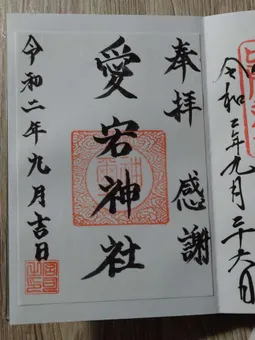 奉拝 感謝
愛宕神社
令和二年九月吉日
令和二年九月二十六日